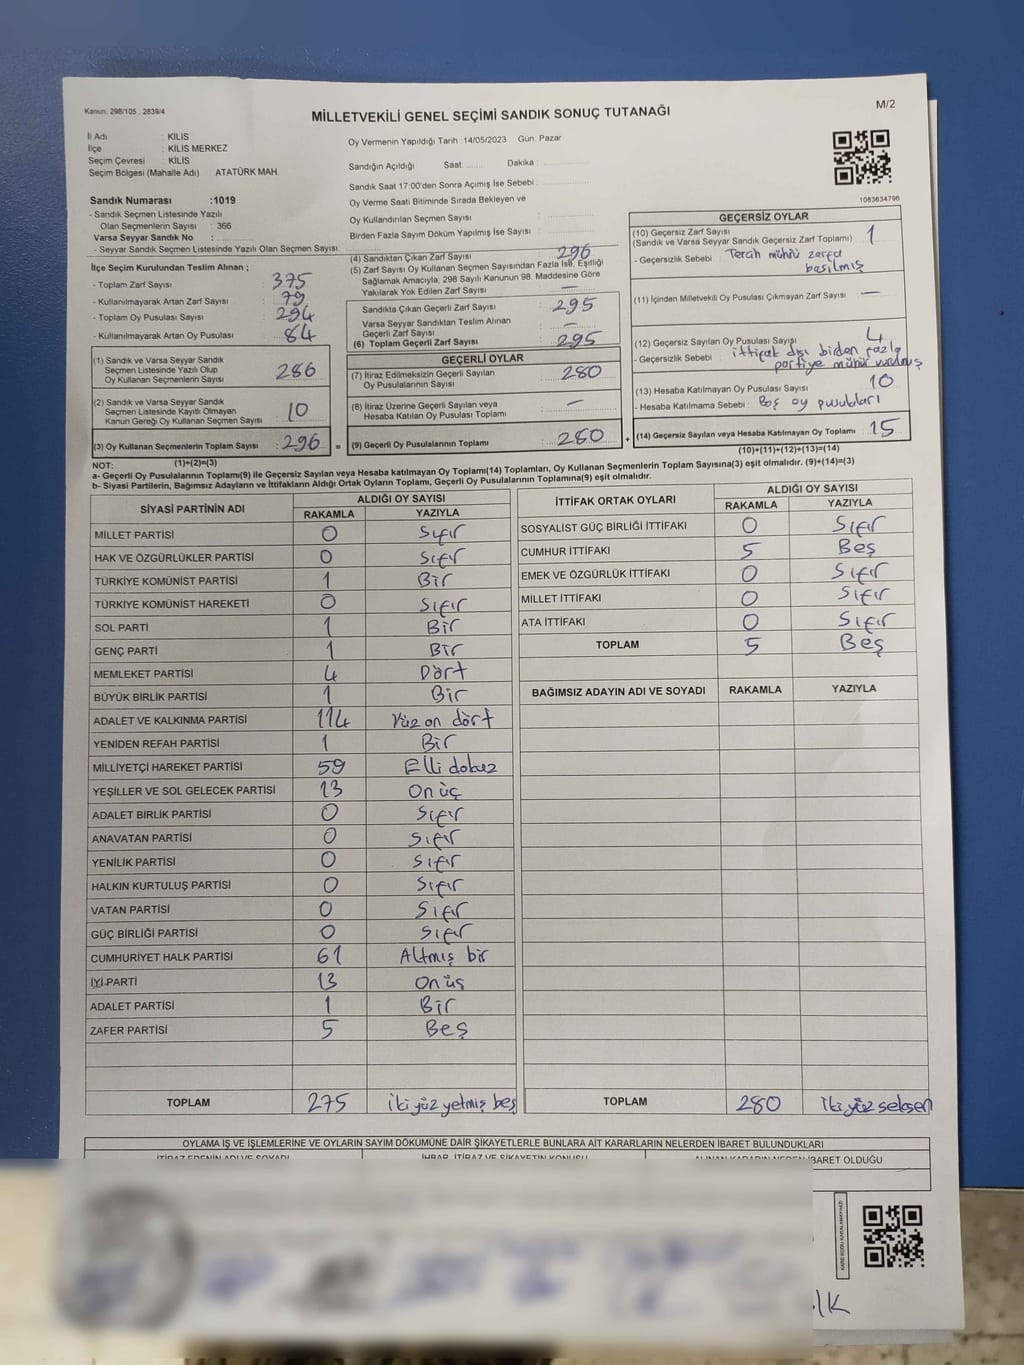 Kanun: 298/105 : 2839/4
MİLLETVEKİLİ GENEL SEÇİMİ SANDIK SONUÇ TUTANAĞI
M/2
İl Adı : KİLİS
İlçe : KİLİS MERKEZ
Seçim Çevresi : KİLİS
Seçim Bölgesi (Mahalle Adı) : ATATÜRK MAH.
Sandık Numarası :1019
- Sandık Seçmen Listesinde Yazılı
Olan Seçmenlerin Sayısı : 366
Varsa Seyyar Sandık No :
- Seyyar Sandık Seçmen Listesinde Yazılı Olan Seçmen Sayısı:
Oy Vermenin Yapıldığı Tarih :14/05/2023 Gün: Pazar
Sandığın Açıldığı Saat: Dakika :
Sandık Saat 17:00'den Sonra Açımış İse Sebebi :
Oy Verme Saati Bitiminde Sırada Bekleyen ve
Oy Kullandırılan Seçmen Sayısı :
Birden Fazla Sayım Döküm Yapılmış İse Sayısı :
1083634796
İlçe Seçim Kurulundan Teslim Alınan ;
- Toplam Zarf Sayısı : 375
- Kullanılmayarak Artan Zarf Sayısı : 79
- Toplam Oy Pusulası Sayısı : 294
- Kullanılmayarak Artan Oy Pusulası : 84
(1) Sandık ve Varsa Seyyar Sandık
Seçmen Listesinde Yazılı Olup
Oy Kullanan Seçmenlerin Sayısı : 286
(2) Sandık ve Varsa Seyyar Sandık
Seçmen Listesinde Kayıtlı Olmayan
Kanun Gereği Oy Kullanan Seçmen Sayısı : 10
(3) Oy Kullanan Seçmenlerin Toplam Sayısı : 296 =
(1)+(2)=(3)
(4) Sandıktan Çıkan Zarf Sayısı : 296
(5) Zarf Sayısı Oy Kullanan Seçmen Sayısından Fazla İse, Eşitliği
Sağlamak Amacıyla, 298 Sayılı Kanunun 98. Maddesine Göre
Yakılarak Yok Edilen Zarf Sayısı : —
Sandıkta Çıkan Geçerli Zarf Sayısı : 295
Varsa Seyyar Sandıktan Teslim Alınan
Geçerli Zarf Sayısı : —
(6) Toplam Geçerli Zarf Sayısı : 295
GEÇERLİ OYLAR
(7) İtiraz Edilmeksizin Geçerli Sayılan
Oy Pusulalarının Sayısı : 280
(8) İtiraz Üzerine Geçerli Sayılan veya
Hesaba Katılan Oy Pusulası Toplamı : —
(9) Geçerli Oy Pusulalarının Toplamı : 280 +
GEÇERSİZ OYLAR
(10) Geçersiz Zarf Sayısı
(Sandık ve Varsa Seyyar Sandık Geçersiz Zarf Toplamı) : 1
- Geçersizlik Sebebi : Tercih mührü zarfa
basılmış
(11) İçinden Milletvekili Oy Pusulası Çıkmayan Zarf Sayısı : —
(12) Geçersiz Sayılan Oy Pusulası Sayısı : 4
- Geçersizlik Sebebi : ittifak dışı birden fazla
partiye mühür vurulmuş
(13) Hesaba Katılmayan Oy Pusulası Sayısı : 10
- Hesaba Katılmama Sebebi : Boş oy pusulaları
(14) Geçersiz Sayılan veya Hesaba Katılmayan Oy Toplamı : 15
(10)+(11)+(12)+(13)=(14)
NOT:
a- Geçerli Oy Pusulalarının Toplamı(9) ile Geçersiz Sayılan veya Hesaba katılmayan Oy Toplamı(14) Toplamları, Oy Kullanan Seçmenlerin Toplam Sayısına(3) eşit olmalıdır. (9)+(14)=(3)
b- Siyasi Partilerin, Bağımsız Adayların ve İttifakların Aldığı Ortak Oyların Toplamı, Geçerli Oy Pusulalarının Toplamına(9) eşit olmalıdır.
SİYASİ PARTİNİN ADI ALDIĞI OY SAYISI
RAKAMLA YAZIYLA
MİLLET PARTİSİ 0 Sıfır
HAK VE ÖZGÜRLÜKLER PARTİSİ 0 Sıfır
TÜRKİYE KOMÜNİST PARTİSİ 1 Bir
TÜRKİYE KOMÜNİST HAREKETİ 0 Sıfır
SOL PARTİ 1 Bir
GENÇ PARTİ 1 Bir
MEMLEKET PARTİSİ 4 Dört
BÜYÜK BİRLİK PARTİSİ 1 Bir
ADALET VE KALKINMA PARTİSİ 114 Yüz on dört
YENİDEN REFAH PARTİSİ 1 Bir
MİLLİYETÇİ HAREKET PARTİSİ 59 Elli dokuz
YEŞİLLER VE SOL GELECEK PARTİSİ 13 On üç
ADALET BİRLİK PARTİSİ 0 Sıfır
ANAVATAN PARTİSİ 0 Sıfır
YENİLİK PARTİSİ 0 Sıfır
HALKIN KURTULUŞ PARTİSİ 0 Sıfır
VATAN PARTİSİ 0 Sıfır
GÜÇ BİRLİĞİ PARTİSİ 0 Sıfır
CUMHURİYET HALK PARTİSİ 61 Altmış bir
İYİ PARTİ 13 On üç
ADALET PARTİSİ 1 Bir
ZAFER PARTİSİ 5 Beş
TOPLAM 275 iki yüz yetmiş beş
İTTİFAK ORTAK OYLARI ALDIĞI OY SAYISI
RAKAMLA YAZIYLA
SOSYALİST GÜÇ BİRLİĞİ İTTİFAKI 0 Sıfır
CUMHUR İTTİFAKI 5 Beş
EMEK VE ÖZGÜRLÜK İTTİFAKI 0 Sıfır
MİLLET İTTİFAKI 0 Sıfır
ATA İTTİFAKI 0 Sıfır
TOPLAM 5 Beş
BAĞIMSIZ ADAYIN ADI VE SOYADI RAKAMLA YAZIYLA
TOPLAM 280 iki yüz seksen
OYLAMA İŞ VE İŞLEMLERİNE VE OYLARIN SAYIM DÖKÜMÜNE DAİR ŞİKAYETLERLE BUNLARA AİT KARARLARIN NELERDEN İBARET BULUNDUKLARI
İTİRAZ EDENİN ADI VE SOYADI İHBAR, İTİRAZ VE ŞİKAYETİN KONUSU ALINAN KARARIN NEDEN İBARET OLDUĞU